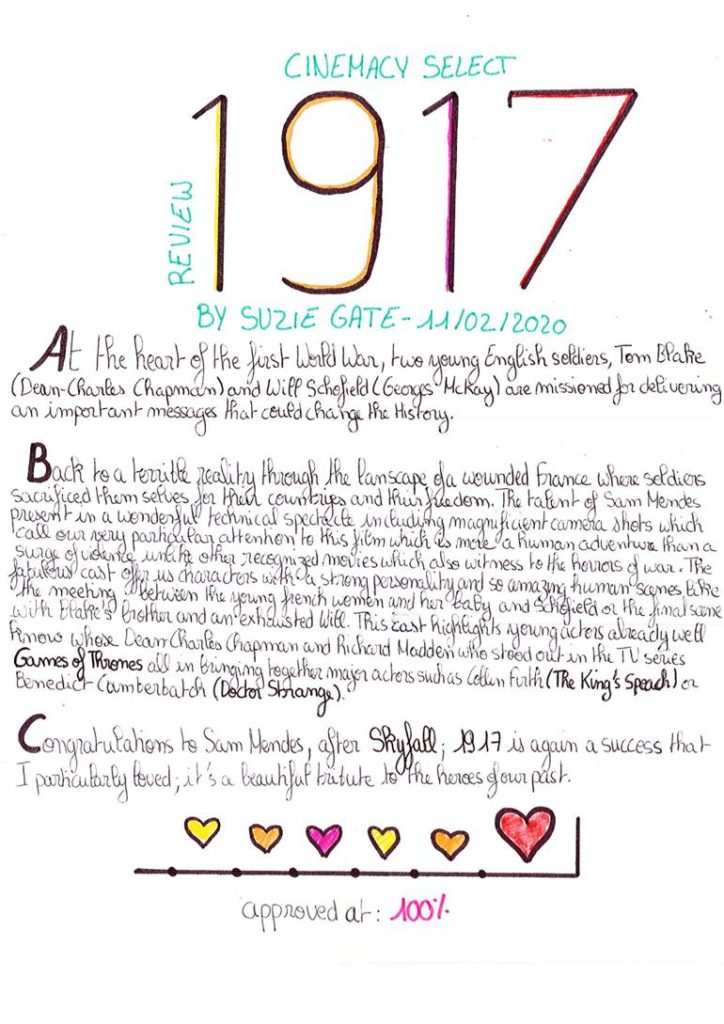 CINEMACY SELECT
1917
REVIEW
BY SUZIE GATE - 11/02/2020
At the heart of the first World War, two young English soldiers, Tom Blake
(Dean-Charles Chapman) and Will Schofield (Georges McKay) are missioned for delivering
an important messages that could change the History.
Back to a terrible reality through the lanscape of a wounded France where soldiers
sacrificed them selves for their countrys and their freedom. The talent of Sam Mendes
present in a wonderful technical spectacle including magnificent camera shots which
call our very particular attention to this film which is more a human adventure than a
surge of violence unlike other recognized movies which also witness to the horrors of war. The
fabulous cast offer us characters with a strong personality and so amazing human scenes like
the meeting between the young french women and her baby and Schofield or the final scene
with Blake's brother and an exhausted Will. This cast highlights young actors already well
know whose Dean Charles Chapman and Richard Madden who stood out in the TV series
Games of Thrones all in bringing together major actors such as Collin Firth (The King's Speach) or
Benedict Cumberbatch (Doctor Strange).
Congratulations to Sam Mendes, after Skyfall; 1917 is again a success that
I particularly loved; it's a beautiful tribute to the heroes of our past.
approved at: 100%